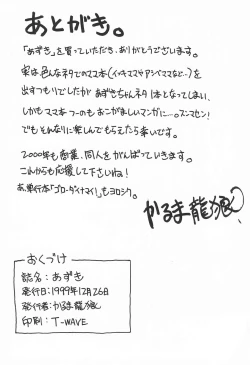 あとがき。
「あずき」を買っていただき、ありがとうございます。
実は色んなネタでのママ本(イッキママやアンペママなど…)を
出すつもりでしたが あずきちゃんネタ1本となってしまい、
しかもママ本つーのもおこがましいマンガに…。スンマセン!
でもそれなりに楽しんでもらえたら幸いです。
2000年も商業、同人をがんばっていきます。
これからも応援して下さいね!
あ、単行本「ゴロー・ダイナマイ!」もヨロシク。
かるま龍狼
おくづけ
誌名:あずき
発行日:1999年12月26日
発行者:かるま龍狼
印刷:T-WAVE